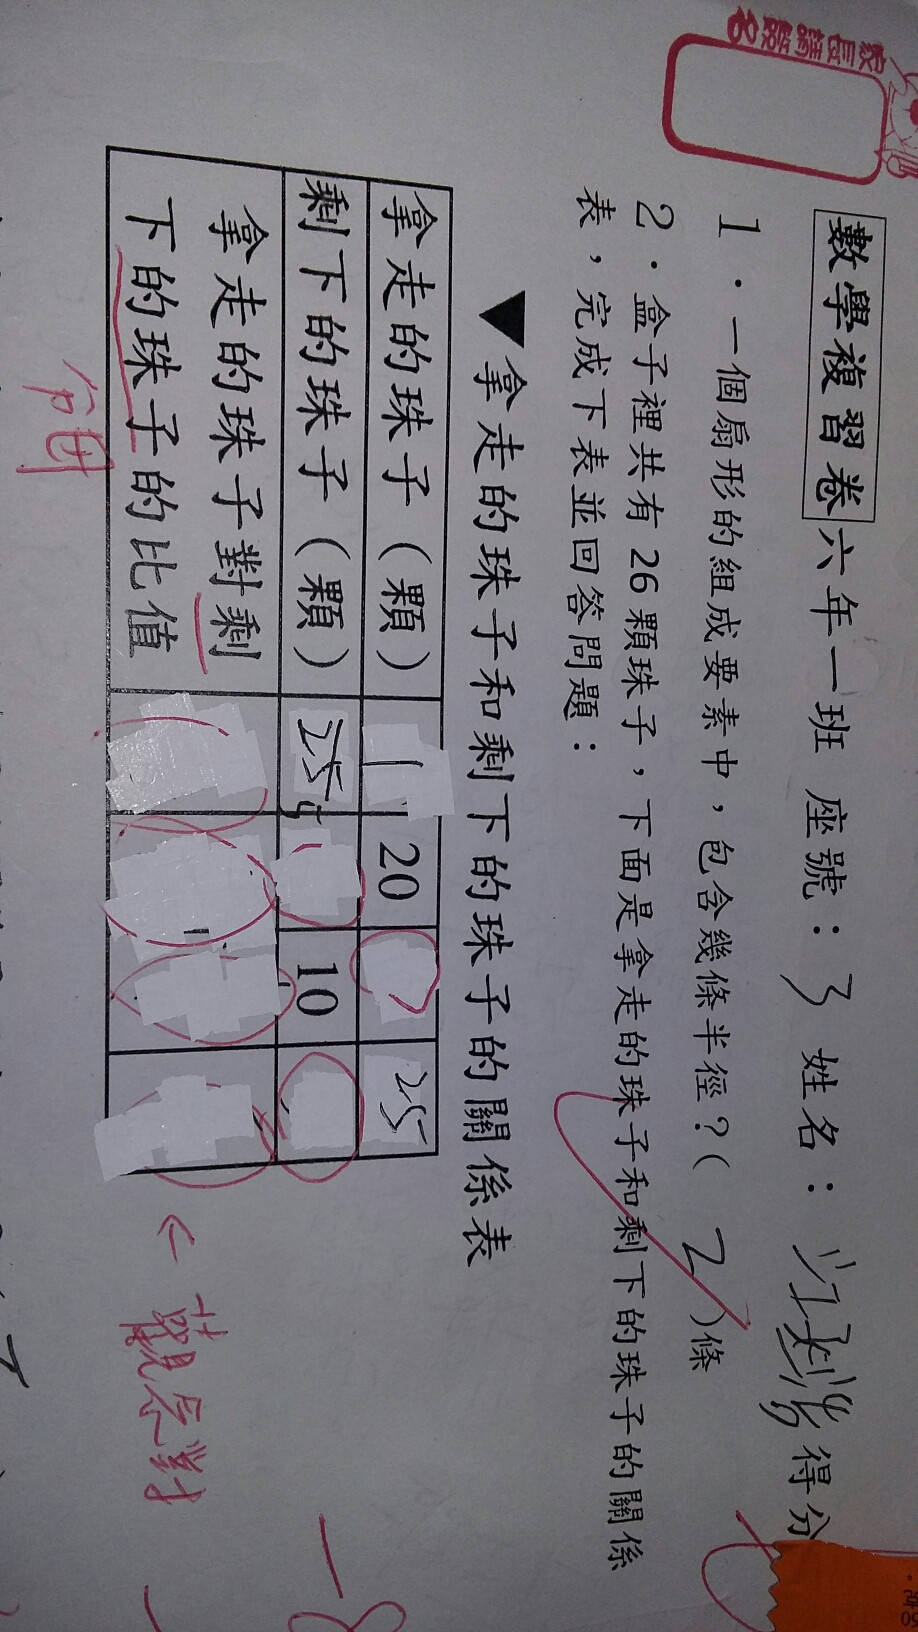 家長請簽名
數學複習卷 六年一班 座號：3 姓名： 得分
1．一個扇形的組成要素中，包含幾條半徑？( 2 )條
2．盒子裡共有26顆珠子，下面是拿走的珠子和剩下的珠子的關係
表，完成下表並回答問題：
▼拿走的珠子和剩下的珠子的關係表
拿走的珠子（顆） 1 20 25
剩下的珠子（顆） 25 10
拿走的珠子對剩
下的珠子的比值
分母
觀念對
-8